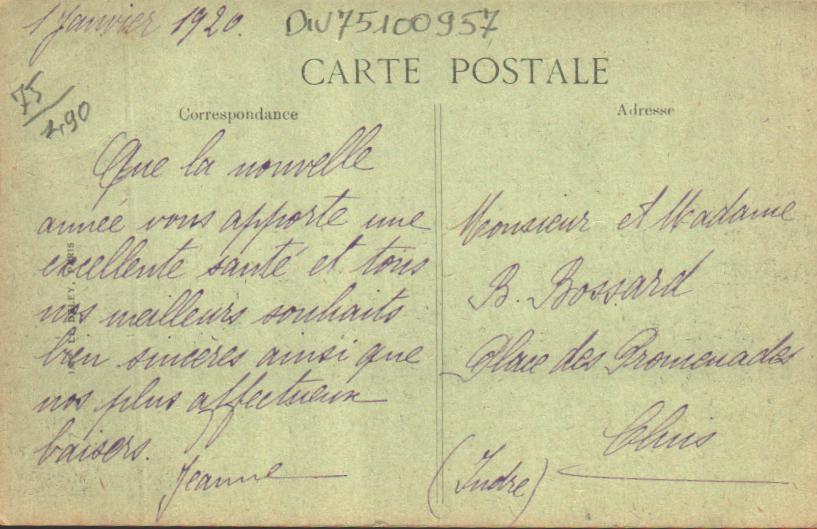 1 Janvier 1920.
DIV75100957
CARTE POSTALE
75
Correspondance
Adresse
Que la nouvelle
année vous apporte une
excellente santé et tous
nos meilleurs souhaits
bien sincères ainsi que
nos plus affectueux
baisers.
Jeanne
Monsieur et Madame
B. Bossard
Place des Promenades
Cluis
(Indre)